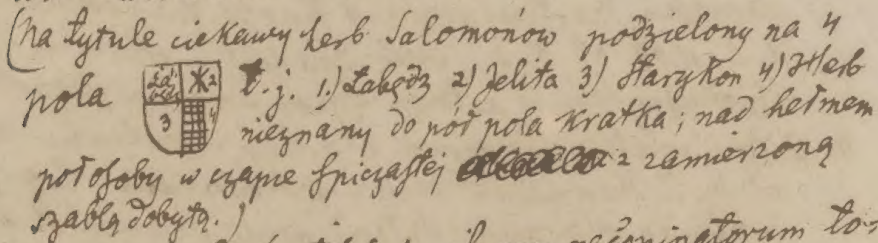 (Na tytule ciekawy herb Salomonów podzielony na 4
pola t. j. 1.) Łabędź 2) Jelita 3) Starykon 4) Herb
Łabędź 2 3 4
nieznany do pół pola kratka; nad hełmem
poł osoby w czapie spiczastej z zamierzoną
szablą dobytą.)
to-